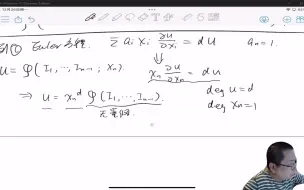 Euler 方程. Σ aᵢ xᵢ ∂u/∂xᵢ = d u aₙ = 1.
u = φ(I₁, ⋯, Iₙ₋₁; xₙ). xₙ ∂u/∂xₙ = d u
⇒ u = xₙᵈ φ(I₁, ⋯, Iₙ₋₁) deg u = d
deg xₙ = 1